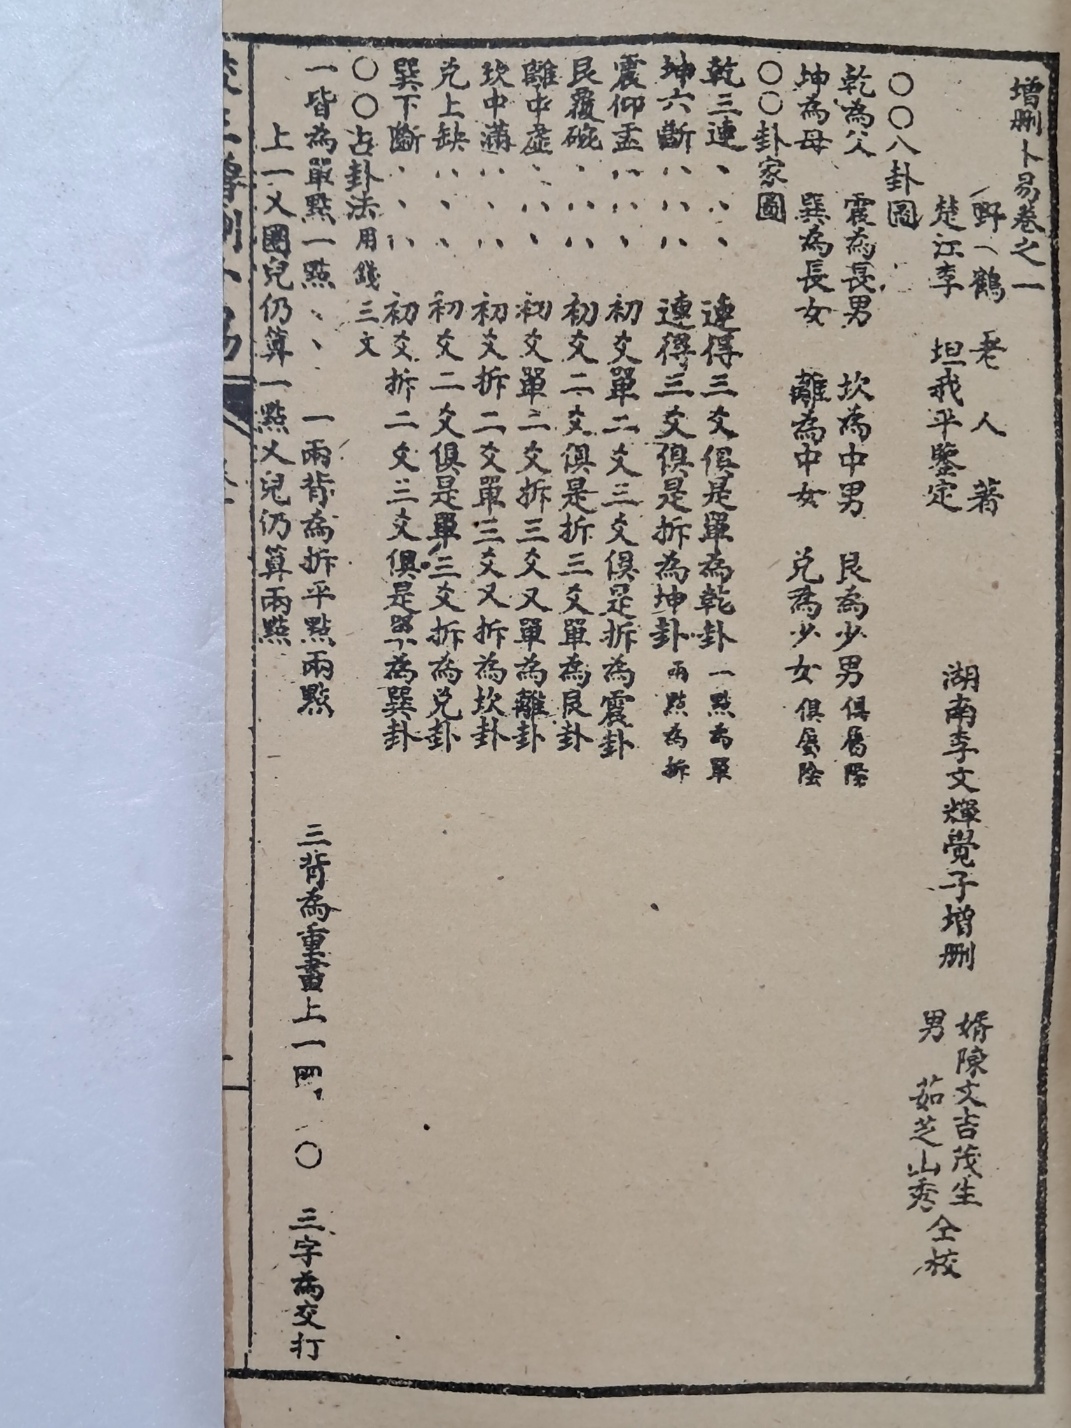 增刪卜易卷之一
野鶴老人著
楚江李 坦我平鑒定
湖南李文輝覺子增刪
婿陳文吉茂生
男 茹芝山秀
仝校
○○八卦圖
乾為父 震為長男 坎為中男 艮為少男 俱屬陽
坤為母 巽為長女 離為中女 兌為少女 俱屬陰
○○卦家圖
乾三連 、、、 連得三爻俱是單為乾卦 一點為單
坤六斷 〃〃〃 連得三爻俱是拆為坤卦 兩點為拆
震仰盂 〃〃、 初爻單二爻三爻俱是拆為震卦
艮覆碗 、〃〃 初爻二爻俱是拆三爻單為艮卦
離中虛 、〃、 初爻單二爻拆三爻又單為離卦
坎中滿 〃、〃 初爻拆二爻單三爻又拆為坎卦
兌上缺 〃、、 初爻二爻俱是單三爻拆為兌卦
巽下斷 、、〃 初爻拆二爻三爻俱是單為巽卦
○○占卦法 用錢三文
一皆為單點一點 、、 一兩背為拆平點兩點 三背為重畫上一 ○ 三字為交打
上一乂圈兒仍算一點乂兒仍算兩點
卜易